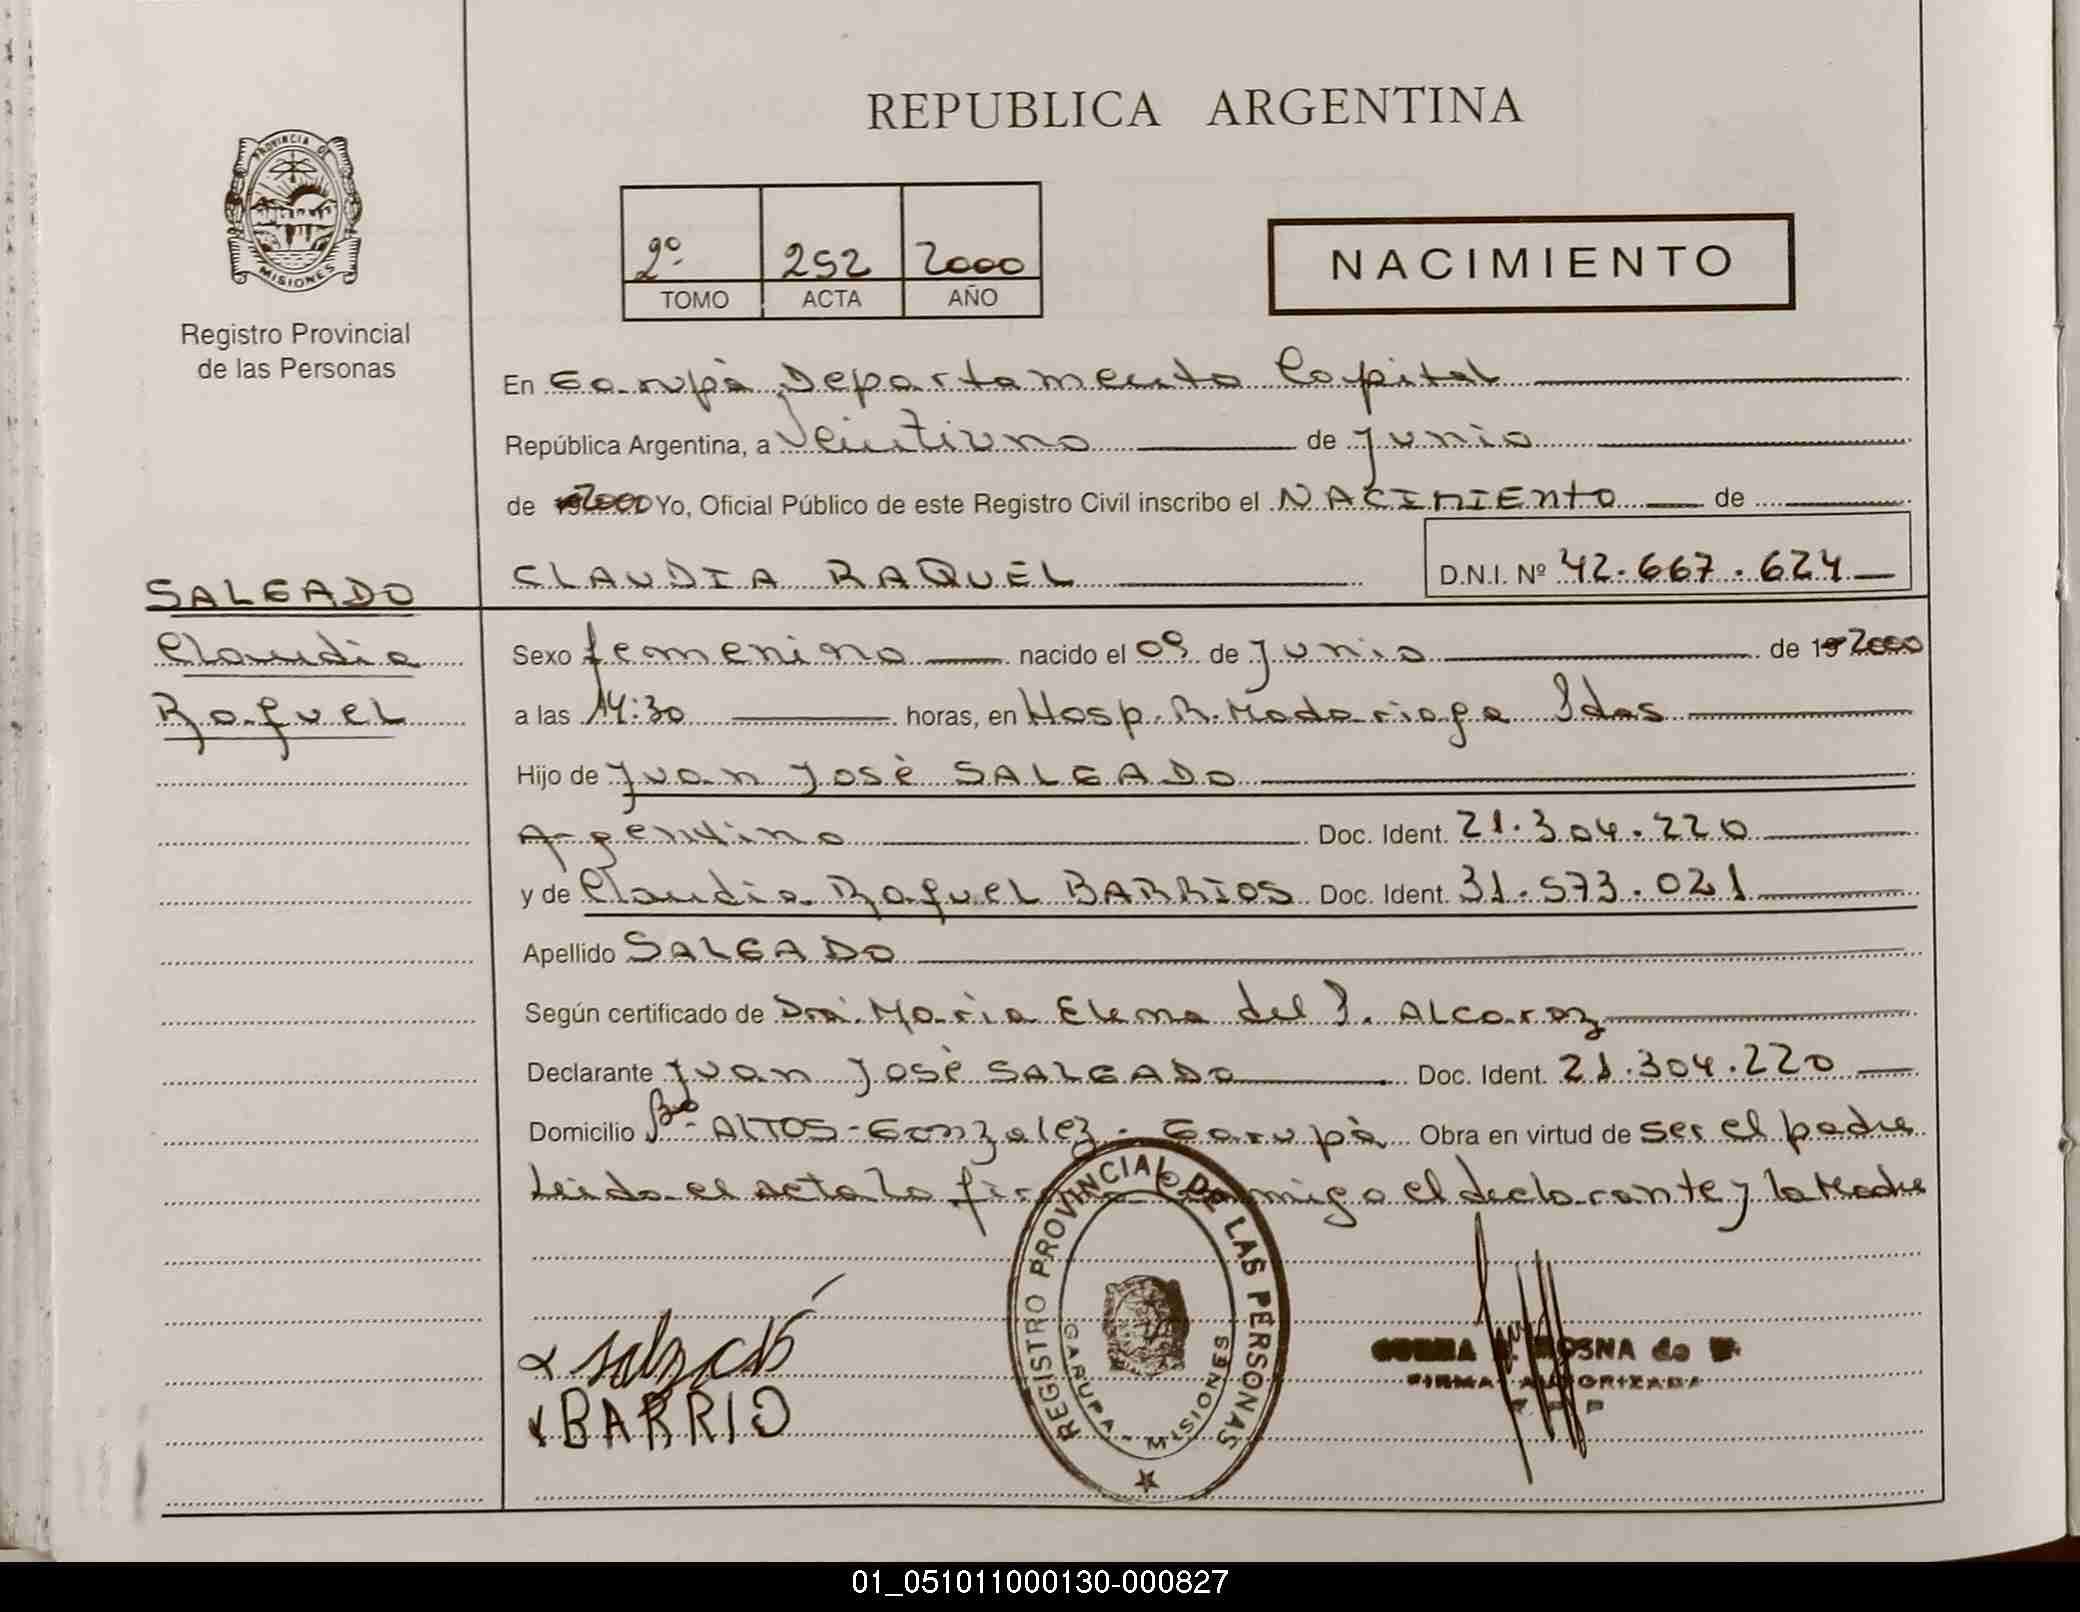 REPUBLICA ARGENTINA
PROVINCIA DE
MISIONES
Registro Provincial
de las Personas
2º 252 2000
TOMO ACTA AÑO
NACIMIENTO
En Garupà Departamento Capital
República Argentina, a Veintiuno de Junio
de 2000 Yo, Oficial Público de este Registro Civil inscribo el NACIMIENTO de
CLAUDIA RAQUEL D.N.I. Nº 42.667.624
SALGADO
Claudia
Raquel
Sexo femenino nacido el 09 de Junio de 19 2000
a las 14:30 horas, en Hosp. R. Madariaga Pdas
Hijo de Juan José SALGADO
Argentino Doc. Ident. 21.304.220
y de Claudia Raquel BARRIOS Doc. Ident. 31.573.021
Apellido SALGADO
Según certificado de Dra. Maria Elena del P. Alcaraz
Declarante Juan José SALGADO Doc. Ident. 21.304.220
Domicilio Bº- ALTOS-Gonzalez- Garupà Obra en virtud de ser el padre
Leida el acta la firma conmigo el declarante y la Madre
REGISTRO PROVINCIAL DE LAS PERSONAS
GARUPA - MISIONES
x Salgado
x BARRIO
FIRMA AUTORIZADA
01_051011000130-000827